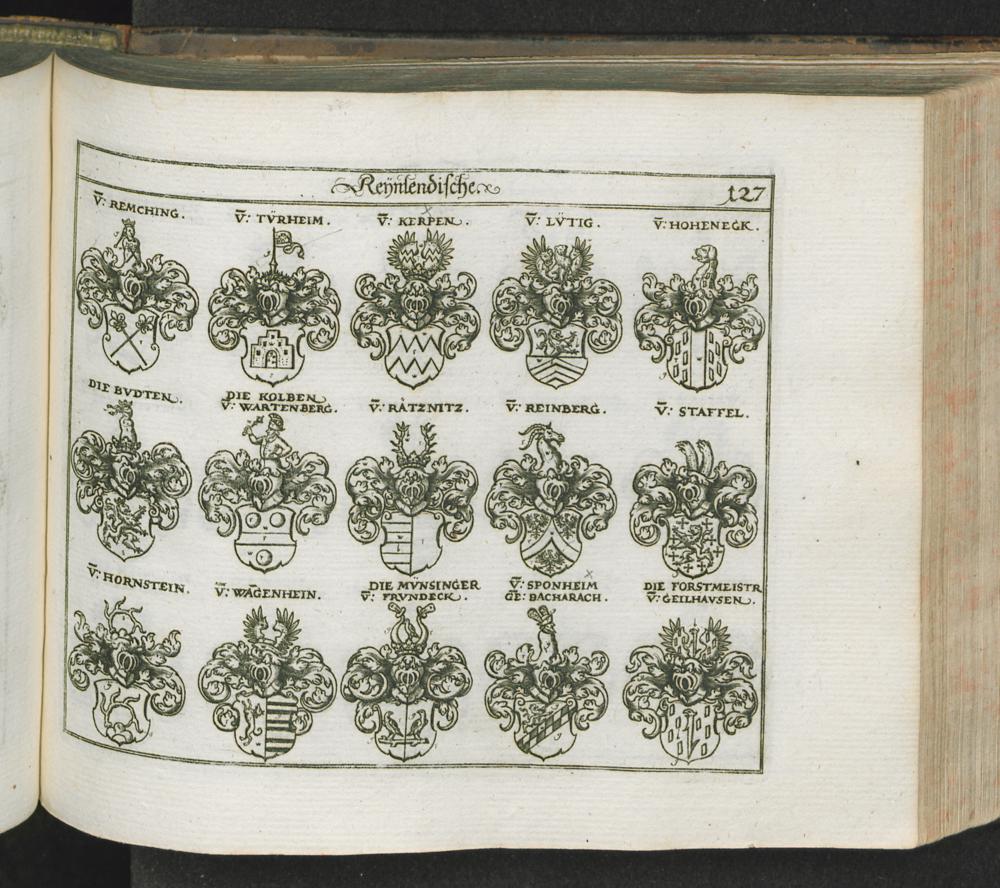 Reynlendische
127
V: REMCHING.
V: TVRHEIM.
V: KERPEN.
V: LVTIG.
V: HOHENECK.
DIE BVDTEN.
DIE KOLBEN
V: WARTENBERG.
V: RATZNITZ.
V: REINBERG.
V: STAFFEL.
V: HORNSTEIN.
V: WAGENHEIN.
DIE MVNSINGER
V: FRVNDECK.
V: SPONHEIM
GE: BACHARACH.
DIE FORSTMEISTR
V: GEILHAVSEN.